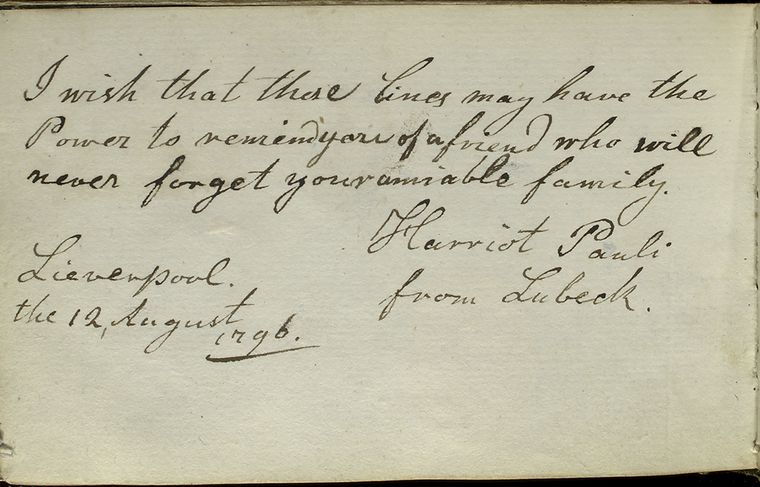 I wish that these lines may have the
Power to remind you of a friend who will
never forget your amiable family.
Harriot Pauli
from Lubeck.
Lieverpool.
the 12, August
1796.